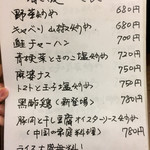 野菜炒め 680円
キャベツ 山椒炒め 680円
鮭チャーハン 700円
青梗菜ときのこ塩炒め 720円
麻婆ナス 750円
トマトと玉子塩炒め 750円
黒酢鶏(新登場) 730円
豚肉と干し豆腐オイスターソース炒め
(中国の家庭料理) 780円
ライス大盛無料!